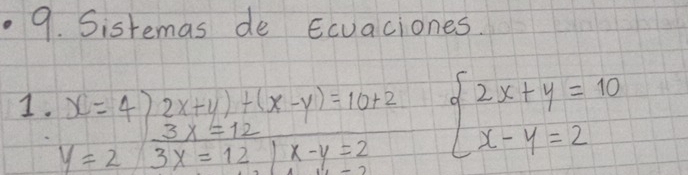 • 9. Sistemas de Ecuaciones.
1. x = 4) 2x+y) + (x-y) = 10+2
3x = 12
y = 2 3x = 12 ) x-y = 2
{ 2x + y = 10
x - y = 2